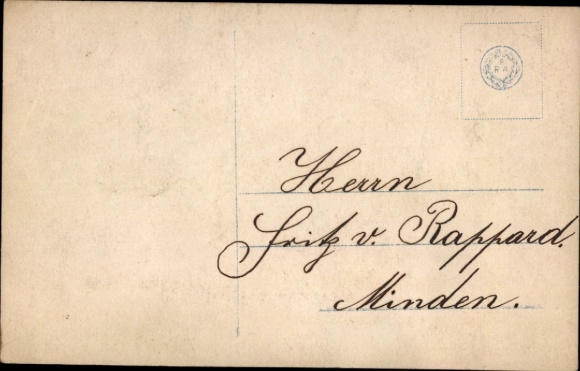 Herrn
Fritz v. Rappard.
Minden.